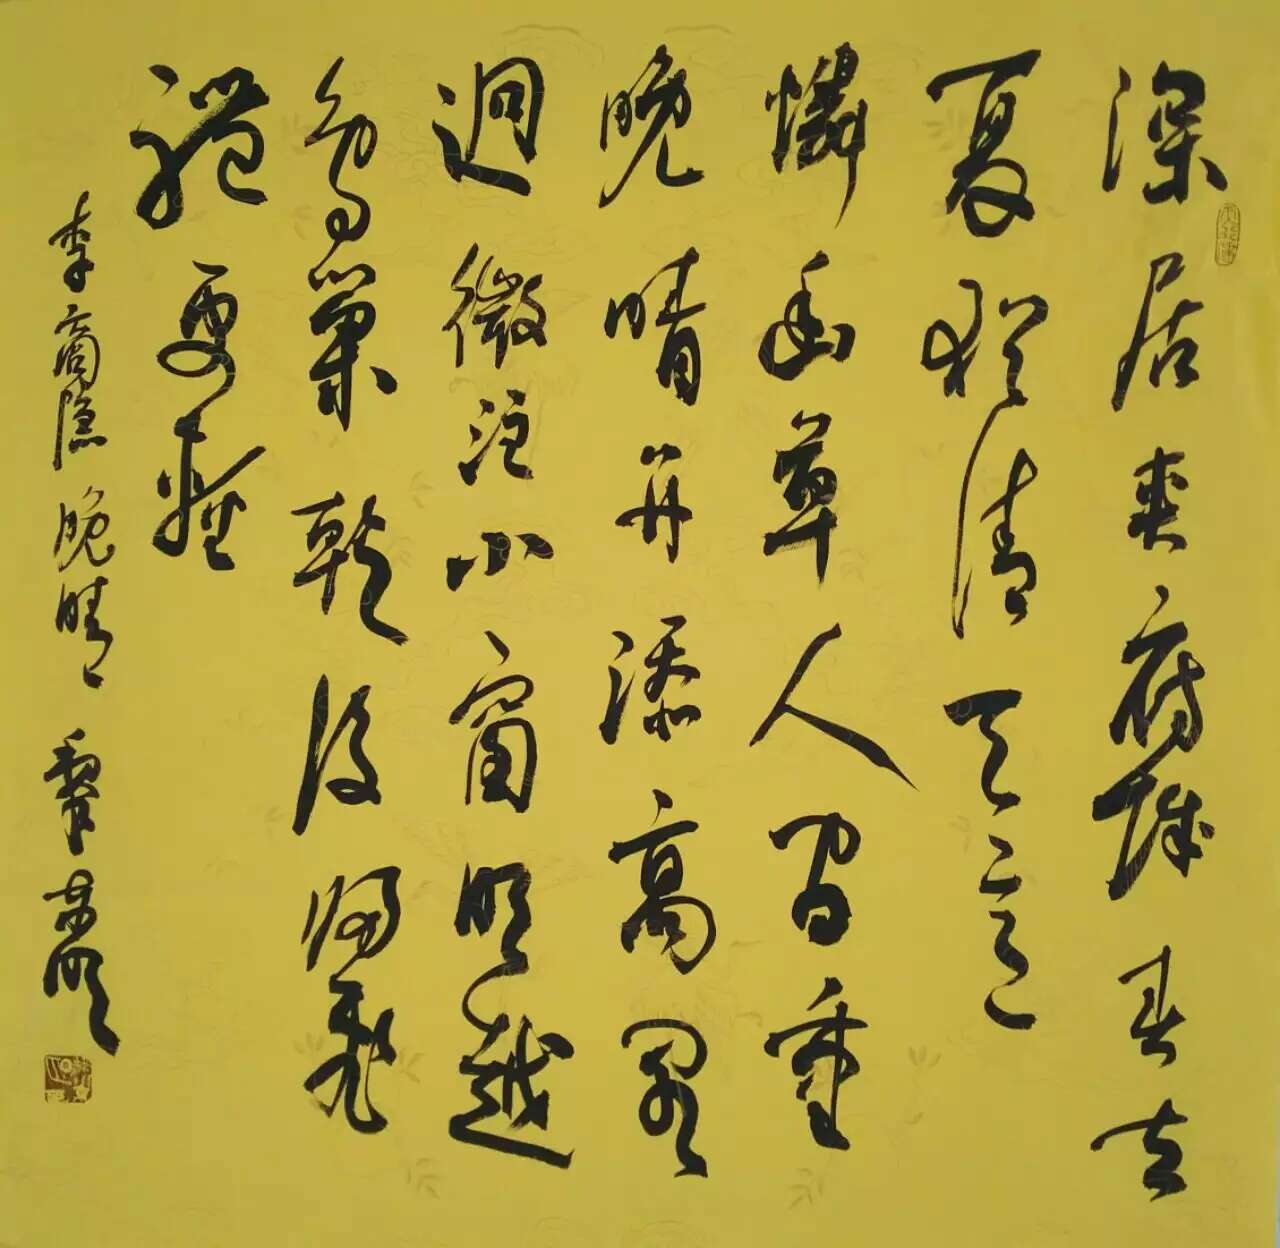 深居夾府城春去
夏猶清天意
憐幽草人间重
晚晴并添高阁
逈微注小窗明越
鳥巢乾後歸飛
體更輕
李商隐晚晴